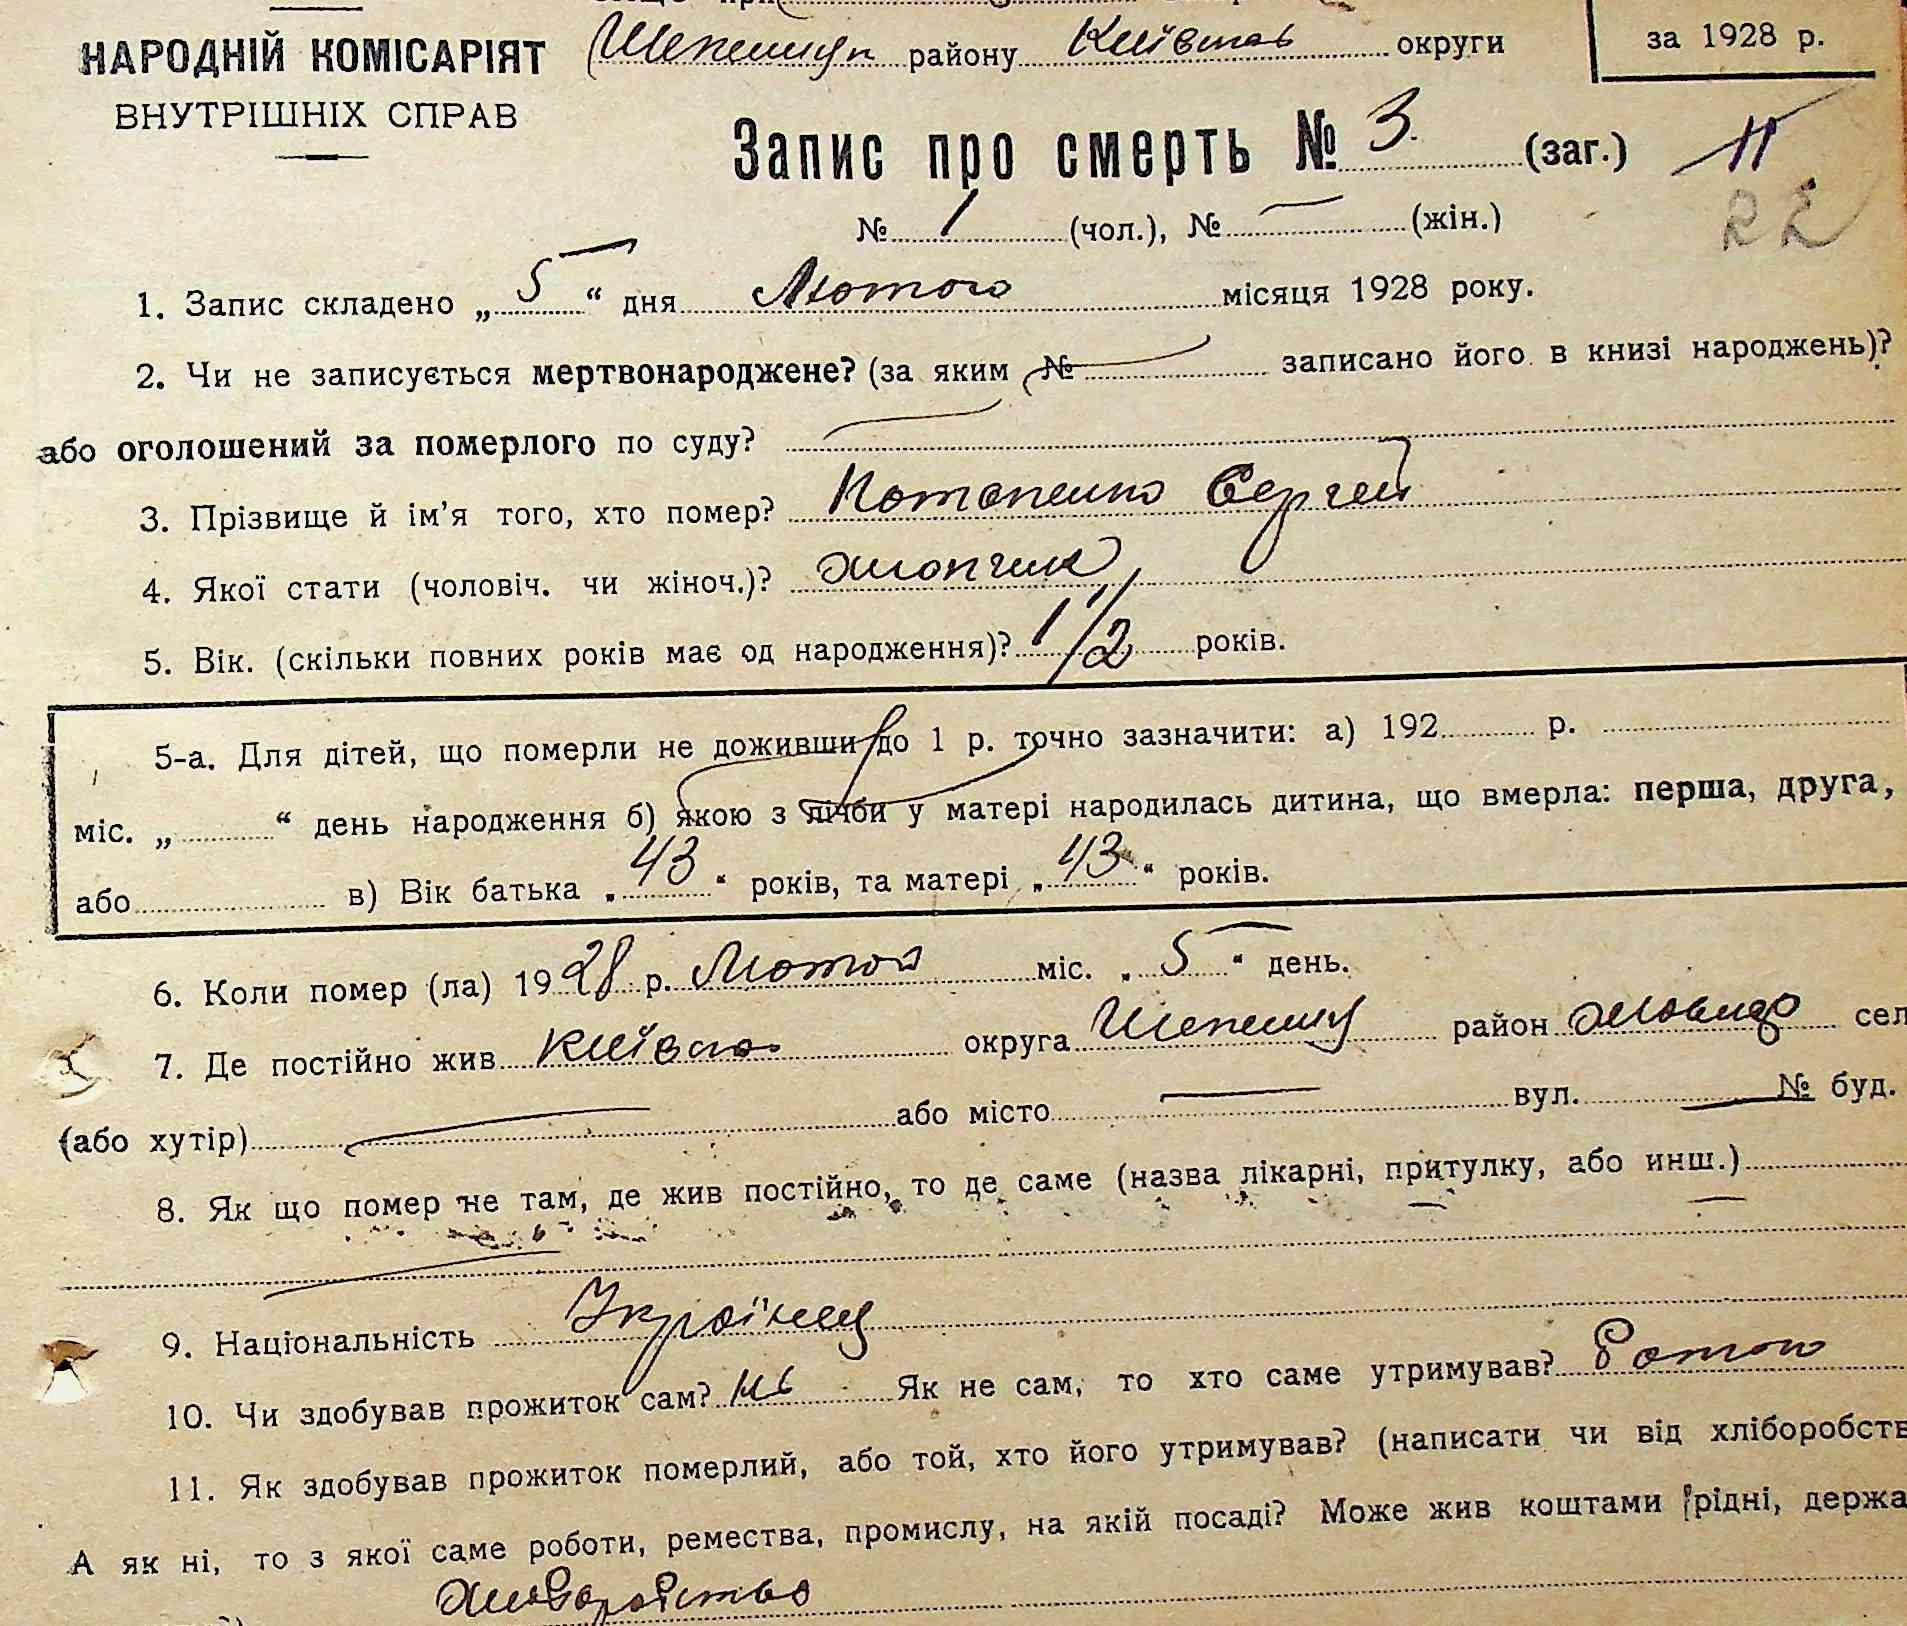 НАРОДНІЙ КОМІСАРІЯТ
ВНУТРІШНІХ СПРАВ
району округи
за 1928 р.
Запис про смерть № 3. (заг.) 11
№ 1 (чол.), № — (жін.) 22
1. Запис складено „ 5 “ дня Лютого місяця 1928 року.
2. Чи не записується мертвонароджене? (за яким № записано його в книзі народжень)?
або оголошений за померлого по суду?
3. Прізвище й ім'я того, хто помер? Потапенко Сергей
4. Якої стати (чоловіч. чи жіноч.)? хлопчик
5. Вік. (скільки повних років має од народження)? 1 1/2 років.
5-а. Для дітей, що померли не доживши до 1 р. точно зазначити: а) 192 р.
міс. „ “ день народження б) якою з лічби у матері народилась дитина, що вмерла: перша, друга,
або в) Вік батька „ 43 “ років, та матері „ 43 “ років.
6. Коли помер (ла) 1928 р. Лютого міс. „ 5 “ день.
7. Де постійно жив округа район сел
(або хутір) або місто вул. № буд.
8. Як що помер не там, де жив постійно, то де саме (назва лікарні, притулку, або инш.)
9. Національність Українец
10. Чи здобував прожиток сам? ні Як не сам, то хто саме утримував? Батько
11. Як здобував прожиток померлий, або той, хто його утримував? (написати чи від хліборобств
А як ні, то з якої саме роботи, ремества, промислу, на якій посаді? Може жив коштами рідні, держа
Хліборобство